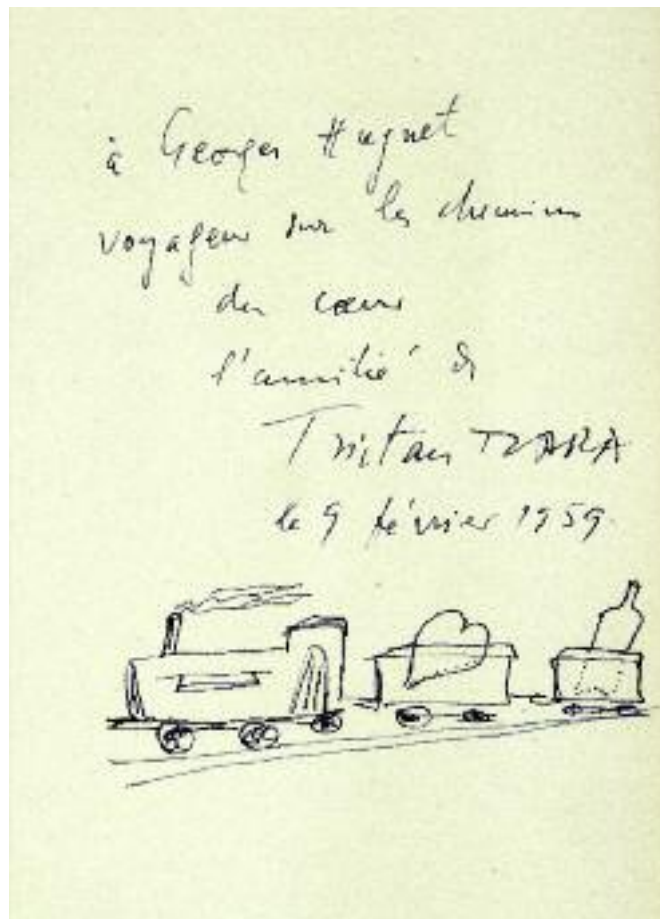 à Georges Hugnet
voyageur sur les chemins
du cœur
l'amitié de
Tristan TZARA
le 9 février 1959.